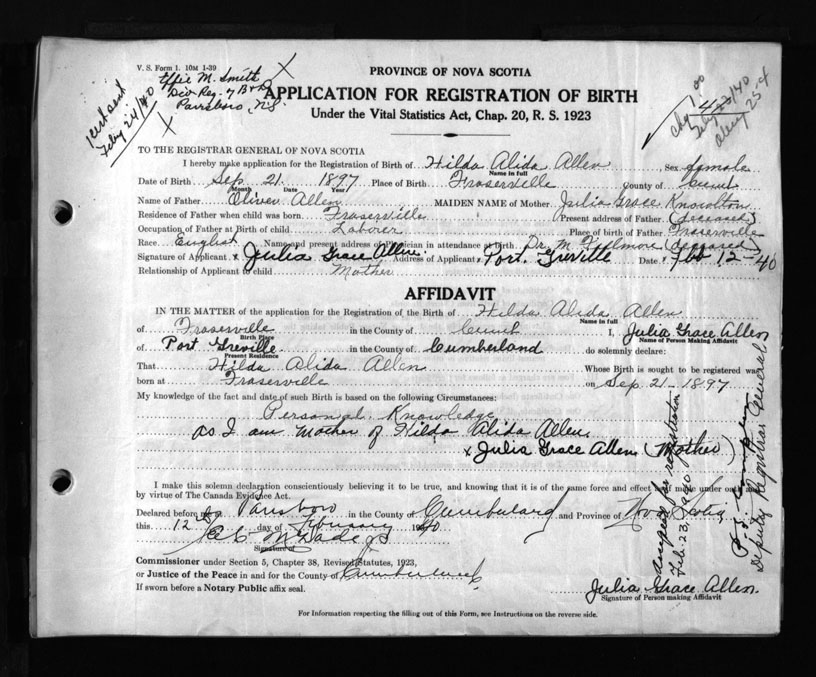 V. S. Form 1. 10M 1-39
Effie M. Smith
Div Reg. 7 B & D
Parrsboro, N.S.
X
X
1 cert sent
Feby 24/40
PROVINCE OF NOVA SCOTIA
APPLICATION FOR REGISTRATION OF BIRTH
Under the Vital Statistics Act, Chap. 20, R. S. 1923
TO THE REGISTRAR GENERAL OF NOVA SCOTIA
I hereby make application for the Registration of Birth of Hilda Alida Allen Sex female
Name in full
Date of Birth Sep. 21. 1897 Place of Birth Fraserville County of Cumb
Month Date Year
Name of Father Oliver Allen MAIDEN NAME of Mother Julia Grace Knowlton
Residence of Father when child was born Fraserville Present address of Father (deceased)
Occupation of Father at Birth of child Laborer Place of birth of Father Fraserville
Race English Name and present address of Physician in attendance at birth Dr. M. Fillmore (deceased)
Signature of Applicant x Julia Grace Allen. Address of Applicant x Port. Greville Date Feb 12-40
Relationship of Applicant to child Mother
AFFIDAVIT
IN THE MATTER of the application for the Registration of the Birth of Hilda Alida Allen
Name in full
of Fraserville in the County of Cumb I, Julia Grace Allen
Birth Place Name of Person Making Affidavit
of Port Greville in the County of Cumberland do solemnly declare:
Present Residence
That Hilda Alida Allen Whose Birth is sought to be registered was
born at Fraserville on Sep 21 - 1897
My knowledge of the fact and date of such Birth is based on the following Circumstances:
Personal Knowledge
as I am Mother of Hilda Alida Allen.
x Julia Grace Allen (Mother)
I make this solemn declaration conscientiously believing it to be true, and knowing that it is of the same force and effect as if made under oath and
by virtue of The Canada Evidence Act.
Declared before me Parrsboro in the County of Cumberland and Province of Nova Scotia
this 12 day of February 1940
Signature of
Commissioner under Section 5, Chapter 38, Revised Statutes, 1923,
or Justice of the Peace in and for the County of Cumberland
If sworn before a Notary Public affix seal.
Julia Grace Allen.
Signature of Person making Affidavit
For Information respecting the filling out of this Form, see Instructions on the reverse side.
Accepted for registration
Feb. 23, 1940
Deputy Registrar General